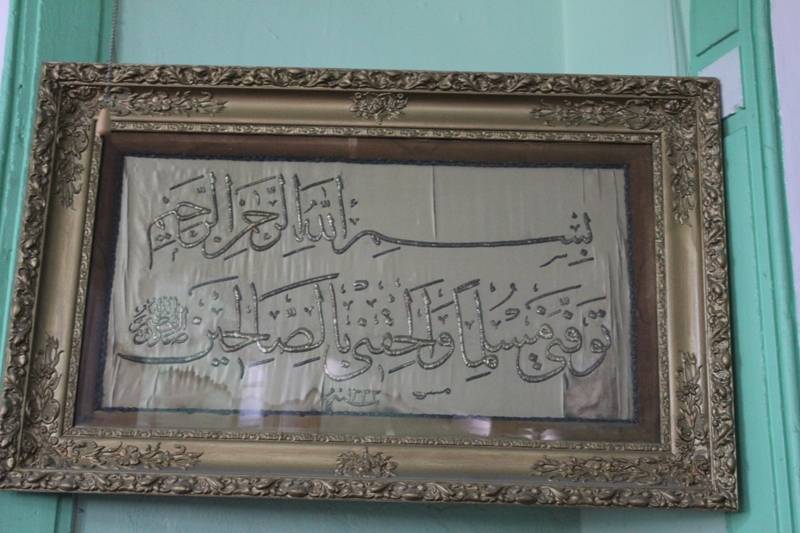 بِسْمِ اللَّهِ الرَّحْمٰنِ الرَّحِيمِ
تَوَفَّنِي مُسْلِمًا وَأَلْحِقْنِي بِالصَّالِحِينَ